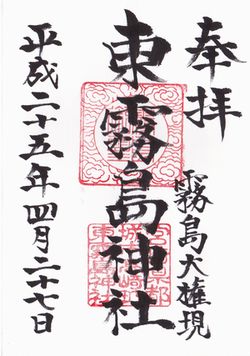 奉拝
霧島大権現
東霧島神社
平成二十五年四月二十七日
霧